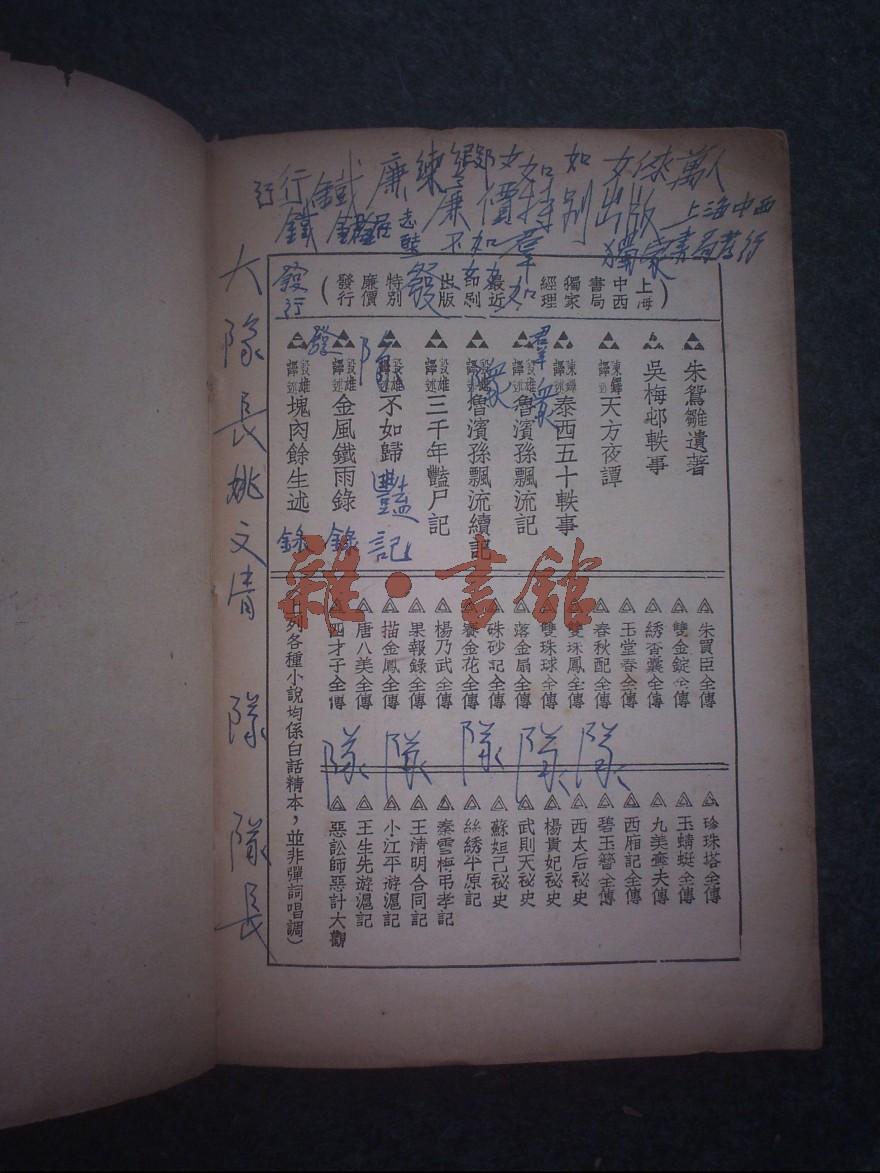 行行鐵廉練文如如女俠萬人
鐵廉價特別出版上海中西
志不如羣獨家書局發行
（上海中西書局獨家經理最近印刷出版特別廉價發行）
發
發行
朱鴛雛遺著
吳梅邨軼事
東鐸譯述天方夜譚
東鐸譯述泰西五十軼事
毅雄譯述魯濱孫飄流記
毅雄譯述魯濱孫飄流續記
毅雄譯述三千年豔尸記
毅雄譯述不如歸
毅雄譯述金風鐵雨錄
毅雄譯述塊肉餘生述
羣衆
衆
隊
發
豔記
錄
錄
雜·書館
朱買臣全傳
雙金錠全傳
綉香囊全傳
玉堂春全傳
春秋配全傳
雙珠鳳全傳
雙珠球全傳
落金扇全傳
硃砂記全傳
賽金花全傳
楊乃武全傳
果報錄全傳
描金鳳全傳
唐八美全傳
四才子全傳
隊隊隊隊隊
珍珠塔全傳
玉蜻蜓全傳
九美奪夫傳
西廂記全傳
碧玉簪全傳
西太后祕史
楊貴妃祕史
武則天祕史
蘇妲己祕史
絲綉平原記
秦雪梅弔孝記
王清明合同記
小江平游滬記
王生先游滬記
惡訟師惡計大觀
上列各種小說均係白話精本，並非彈詞唱調）
大隊長姚文清 隊 隊長